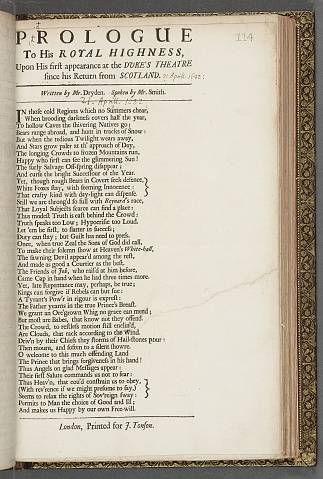 PROLOGUE
114
To His ROYAL HIGHNESS,
Upon His first appearance at the DUKE'S THEATRE
since his Return from SCOTLAND. 21 Aprill. 1682.
Written by Mr. Dryden. Spoken by Mr. Smith.
21. Aprill. 1682
IN those cold Regions which no Summers chear,
When brooding darkness covers half the year,
To hollow Caves the shivering Natives go;
Bears range abroad, and hunt in tracks of Snow:
But when the tedious Twilight wears away,
And Stars grow paler at th' approach of Day,
The longing Crowds to frozen Mountains run,
Happy who first can see the glimmering Sun!
The surly Salvage Off-spring disappear;
And curse the bright Successour of the Year.
Yet, though rough Bears in Covert seek defence,
White Foxes stay, with seeming Innocence:
That crafty kind with day-light can dispense.
Still we are throng'd so full with Reynard's race,
That Loyal Subjects scarce can find a place:
Thus modest Truth is cast behind the Crowd:
Truth speaks too Low; Hypocrisie too Loud.
Let 'em be first, to flatter in success;
Duty can stay; but Guilt has need to press.
Once, when true Zeal the Sons of God did call,
To make their solemn show at Heaven's White-hall,
The fawning Devil appear'd among the rest,
And made as good a Courtier as the best.
The Friends of Job, who rail'd at him before,
Came Cap in hand when he had three times more.
Yet, late Repentance may, perhaps, be true;
Kings can forgive if Rebels can but sue:
A Tyrant's Pow'r in rigour is exprest:
The Father yearns in the true Prince's Breast.
We grant an O're'grown Whig no grace can mend;
But most are Babes, that know not they offend.
The Crowd, to restless motion still enclin'd,
Are Clouds, that rack according to the Wind.
Driv'n by their Chiefs they storms of Hail-stones pour:
Then mourn, and soften to a silent showre.
O welcome to this much offending Land
The Prince that brings forgiveness in his hand!
Thus Angels on glad Messages appear:
Their first Salute commands us not to fear:
Thus Heav'n, that cou'd constrain us to obey,
(With rev'rence if we might presume to say,)
Seems to relax the rights of Sov'reign sway:
Permits to Man the choice of Good and Ill;
And makes us Happy by our own Free-will.
London, Printed for J. Tonson.